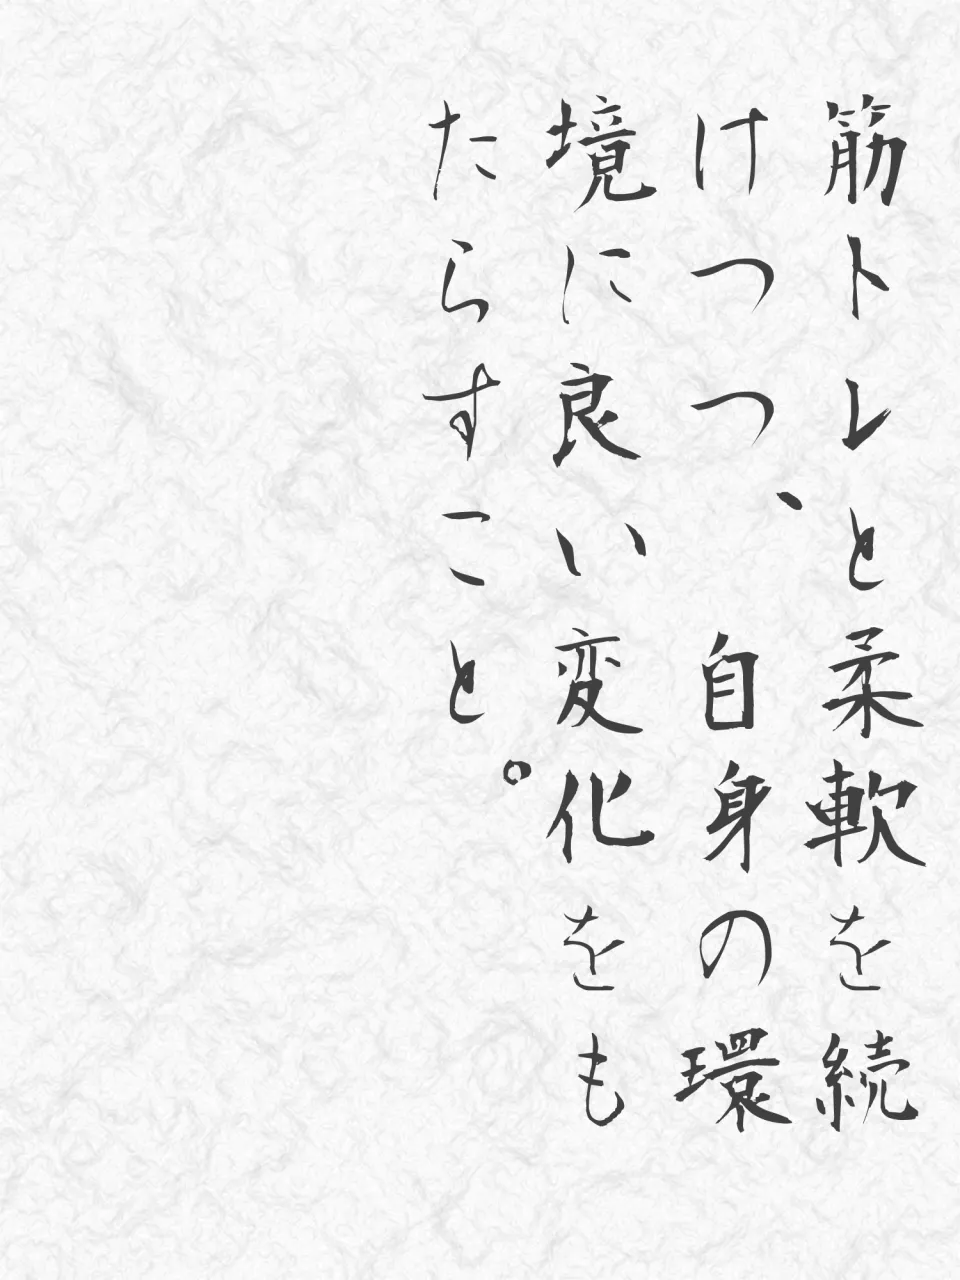 筋トレと柔軟を続
けつつ、自身の環
境に良い変化をも
たらすこと。